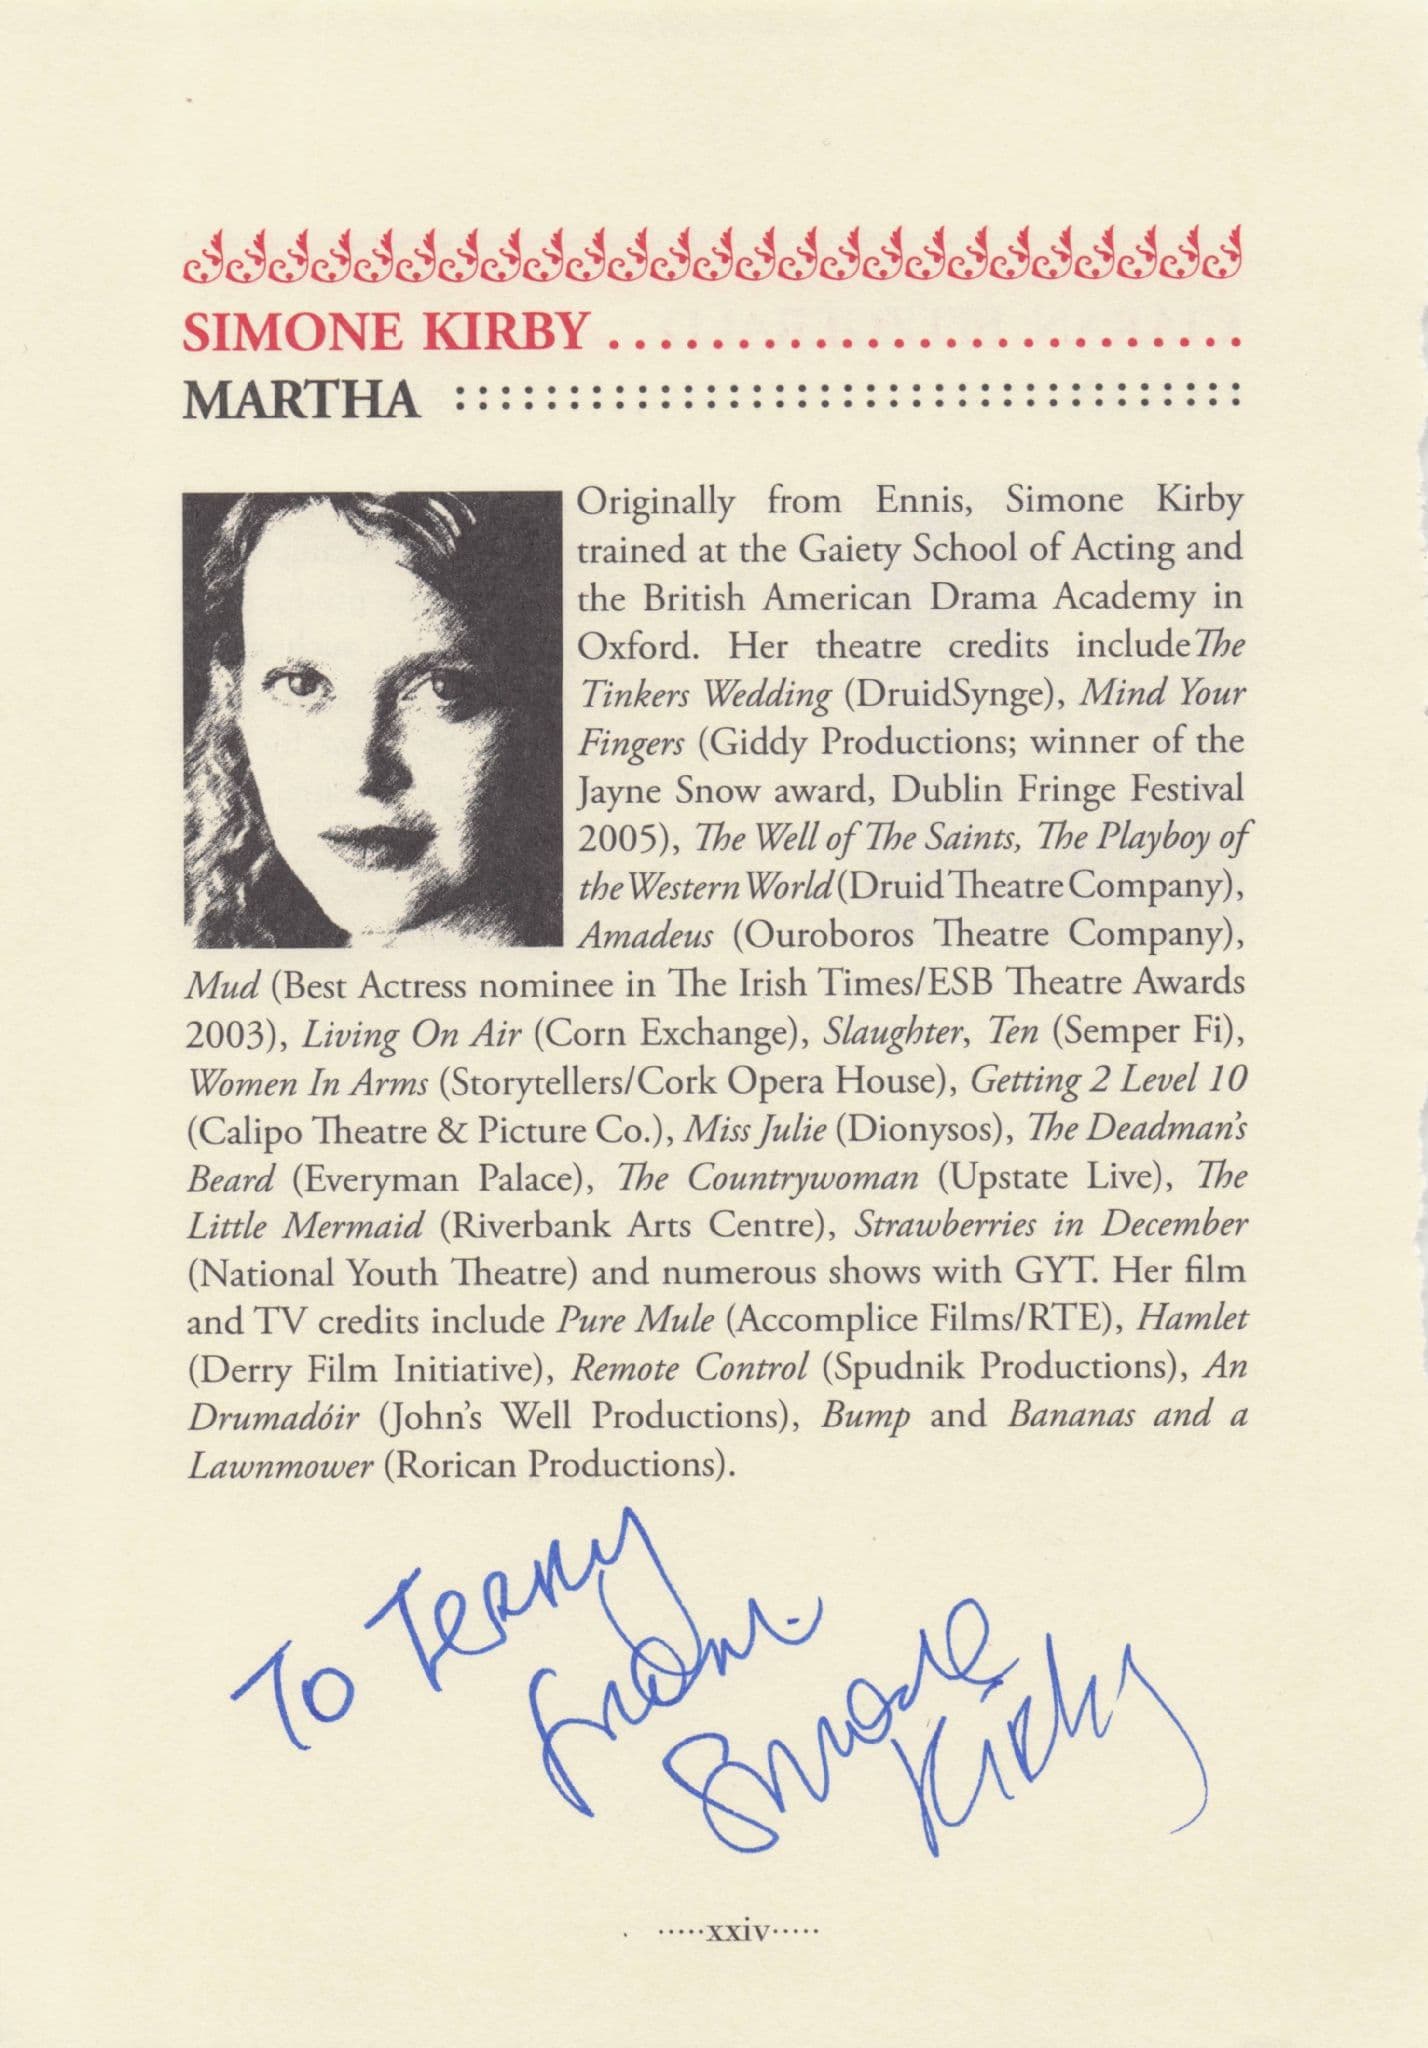 SIMONE KIRBY ..........................
MARTHA :::::::::::::::::::::::::::::::::::
Originally from Ennis, Simone Kirby
trained at the Gaiety School of Acting and
the British American Drama Academy in
Oxford. Her theatre credits include The
Tinkers Wedding (DruidSynge), Mind Your
Fingers (Giddy Productions; winner of the
Jayne Snow award, Dublin Fringe Festival
2005), The Well of The Saints, The Playboy of
the Western World (Druid Theatre Company),
Amadeus (Ouroboros Theatre Company),
Mud (Best Actress nominee in The Irish Times/ESB Theatre Awards
2003), Living On Air (Corn Exchange), Slaughter, Ten (Semper Fi),
Women In Arms (Storytellers/Cork Opera House), Getting 2 Level 10
(Calipo Theatre & Picture Co.), Miss Julie (Dionysos), The Deadman's
Beard (Everyman Palace), The Countrywoman (Upstate Live), The
Little Mermaid (Riverbank Arts Centre), Strawberries in December
(National Youth Theatre) and numerous shows with GYT. Her film
and TV credits include Pure Mule (Accomplice Films/RTE), Hamlet
(Derry Film Initiative), Remote Control (Spudnik Productions), An
Drumadóir (John's Well Productions), Bump and Bananas and a
Lawnmower (Rorican Productions).
To Terry
Simone
Kirby
.....xxiv.....